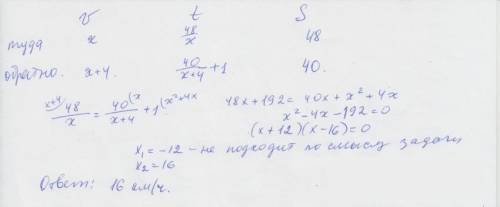 v t S
туда x 48/x 48
обратно. x+4. 40/(x+4) +1 40.
x+4) 48/x = 40(x/(x+4) + 1(x²+4x
48x+192 = 40x+x²+4x
x²-4x-192=0
(x+12)(x-16)=0
x₁ = -12 - не подходит по смыслу задачи
x₂ = 16
Ответ: 16 км/ч.